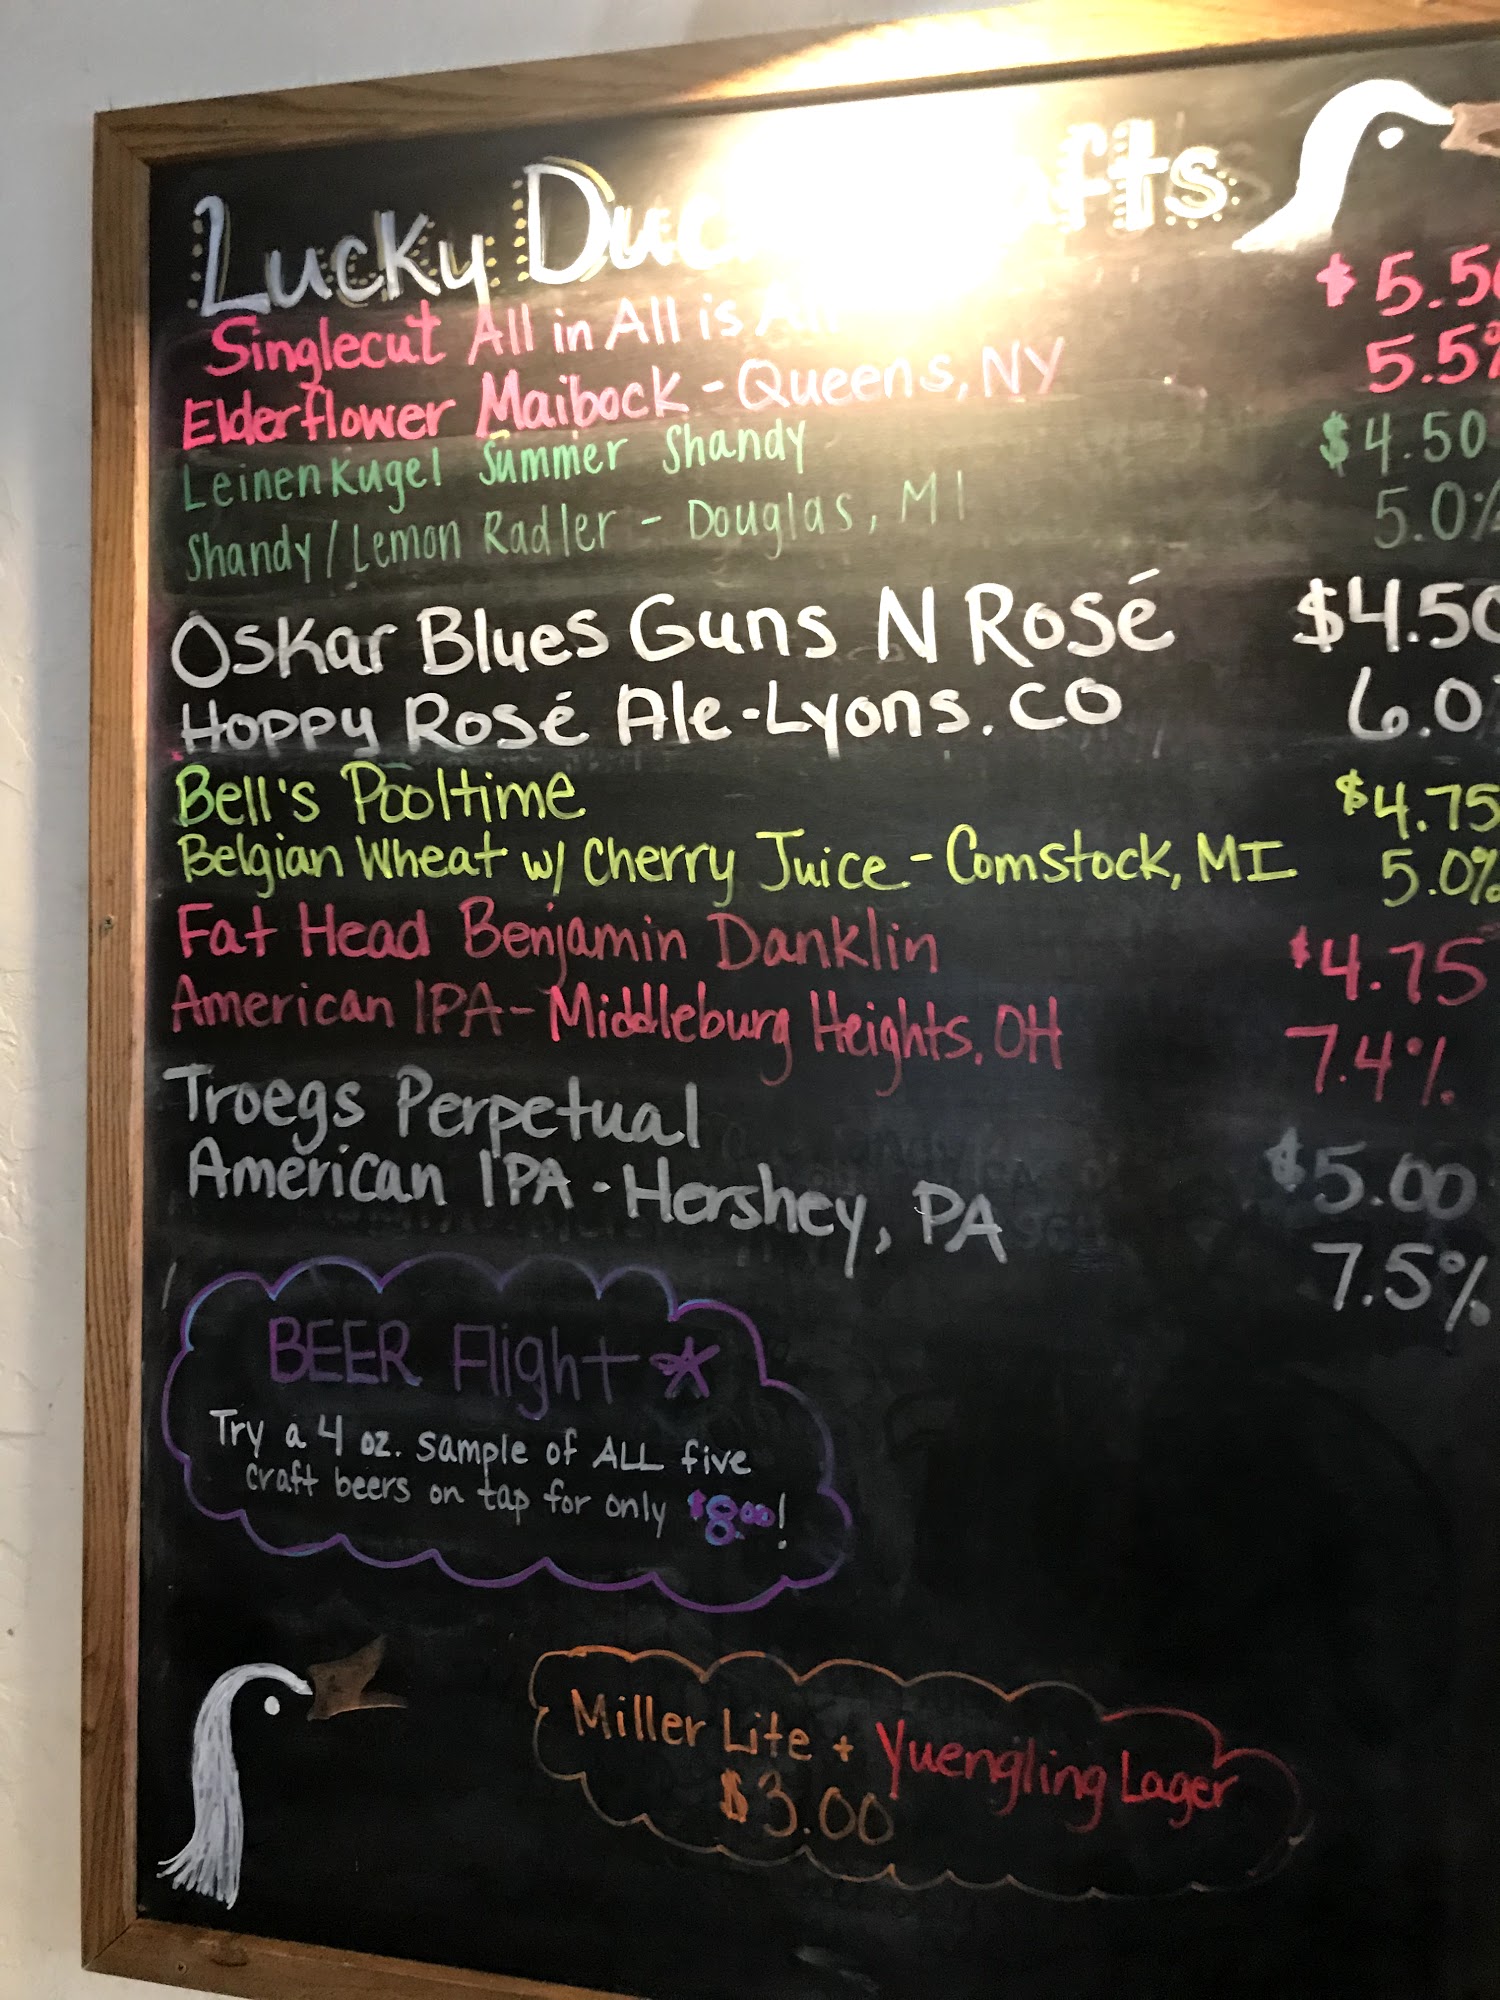 Lucky
Singlecut All in All is All $5.50
Elderflower Maibock - Queens, NY 5.5%
Leinenkugel Summer Shandy $4.50
Shandy/Lemon Radler - Douglas, MI 5.0%
Oskar Blues Guns N Rosé $4.50
Hoppy Rosé Ale - Lyons. CO 6.0%
Bell's Pooltime $4.75
Belgian Wheat w/ Cherry Juice - Comstock, MI 5.0%
Fat Head Benjamin Danklin $4.75
American IPA - Middleburg Heights. OH 7.4%
Troegs Perpetual
American IPA - Hershey, PA $5.00
7.5%
BEER Flight *
Try a 4 oz. sample of ALL five
craft beers on tap for only $8.00!
Miller Lite + Yuengling Lager
$3.00